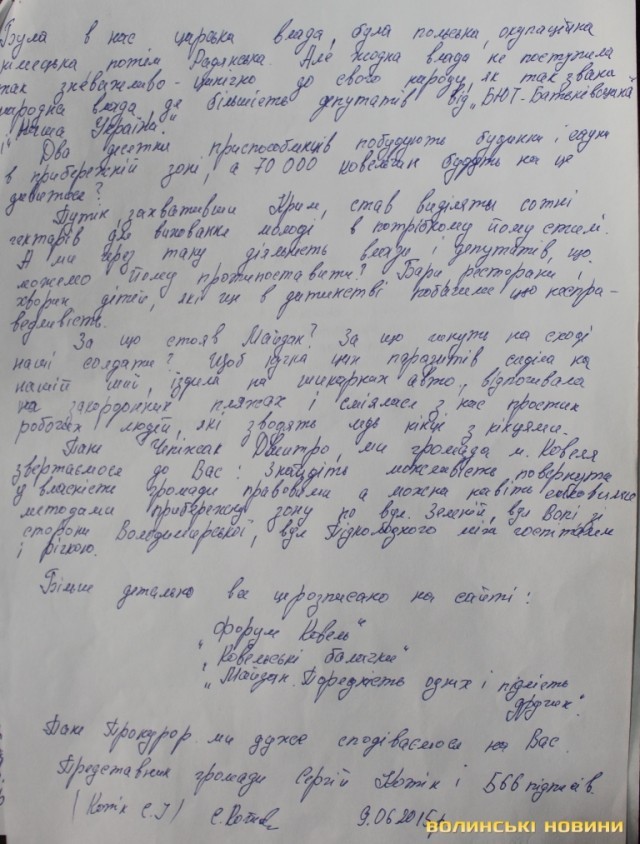 Була в нас царська влада, була польська, окупаційна
німецька потім Радянська. Але жодна влада не поступила
так зневажливо - цинічно до свого народу, як так звана
народна влада де більшість депутатів від „БЮТ-Батьківщина"
і „Наша Україна".
Два десятки приспособинців побудують будинки і сади
в прибережній зоні, а 70 000 ковельчан будуть на це
дивитися?
Путін, захвативши Крим, став виділяти сотні
гектарів для виховання молоді в потрібному йому стилі.
А ми через таку діяльність влади і депутатів, що
можемо йому протипоставити? Бари ресторани і
хворих дітей, які ще в дитинстві побачили цю неспра-
ведливість.
За що стояв Майдан? За що гинуть на сході
наші солдати? Щоб кучка цих паразитів сиділа на
нашій шиї, їздила на шикарних авто, відпочивала
на закордонних пляжах і сміялася з нас простих
робочих людей, які зводять ледь кінці з кінцями.
Пане Чепіжак Дмитро, ми громада м. Ковеля
звертаємося до Вас: Знайдіть можливість повернути
у власність громади правовими а можна навіть силовими
методами прибережну зону по вул. Зеленій, вул Волі зі
сторони Володимирської, вул Підколодкого між гостіталем
і річкою.
Більш детально все це розписано на сайті:
„Форум Ковель"
„Ковельські балачки"
„Майдан. Порядність одних і підлість
других".
Пане Прокурор ми дуже сподіваємося на Вас.
Представник громади Сергій Котік і 566 підписів.
(Котік С.І) 9.06 2015р
ВОЛИНСЬКІ НОВИНИ